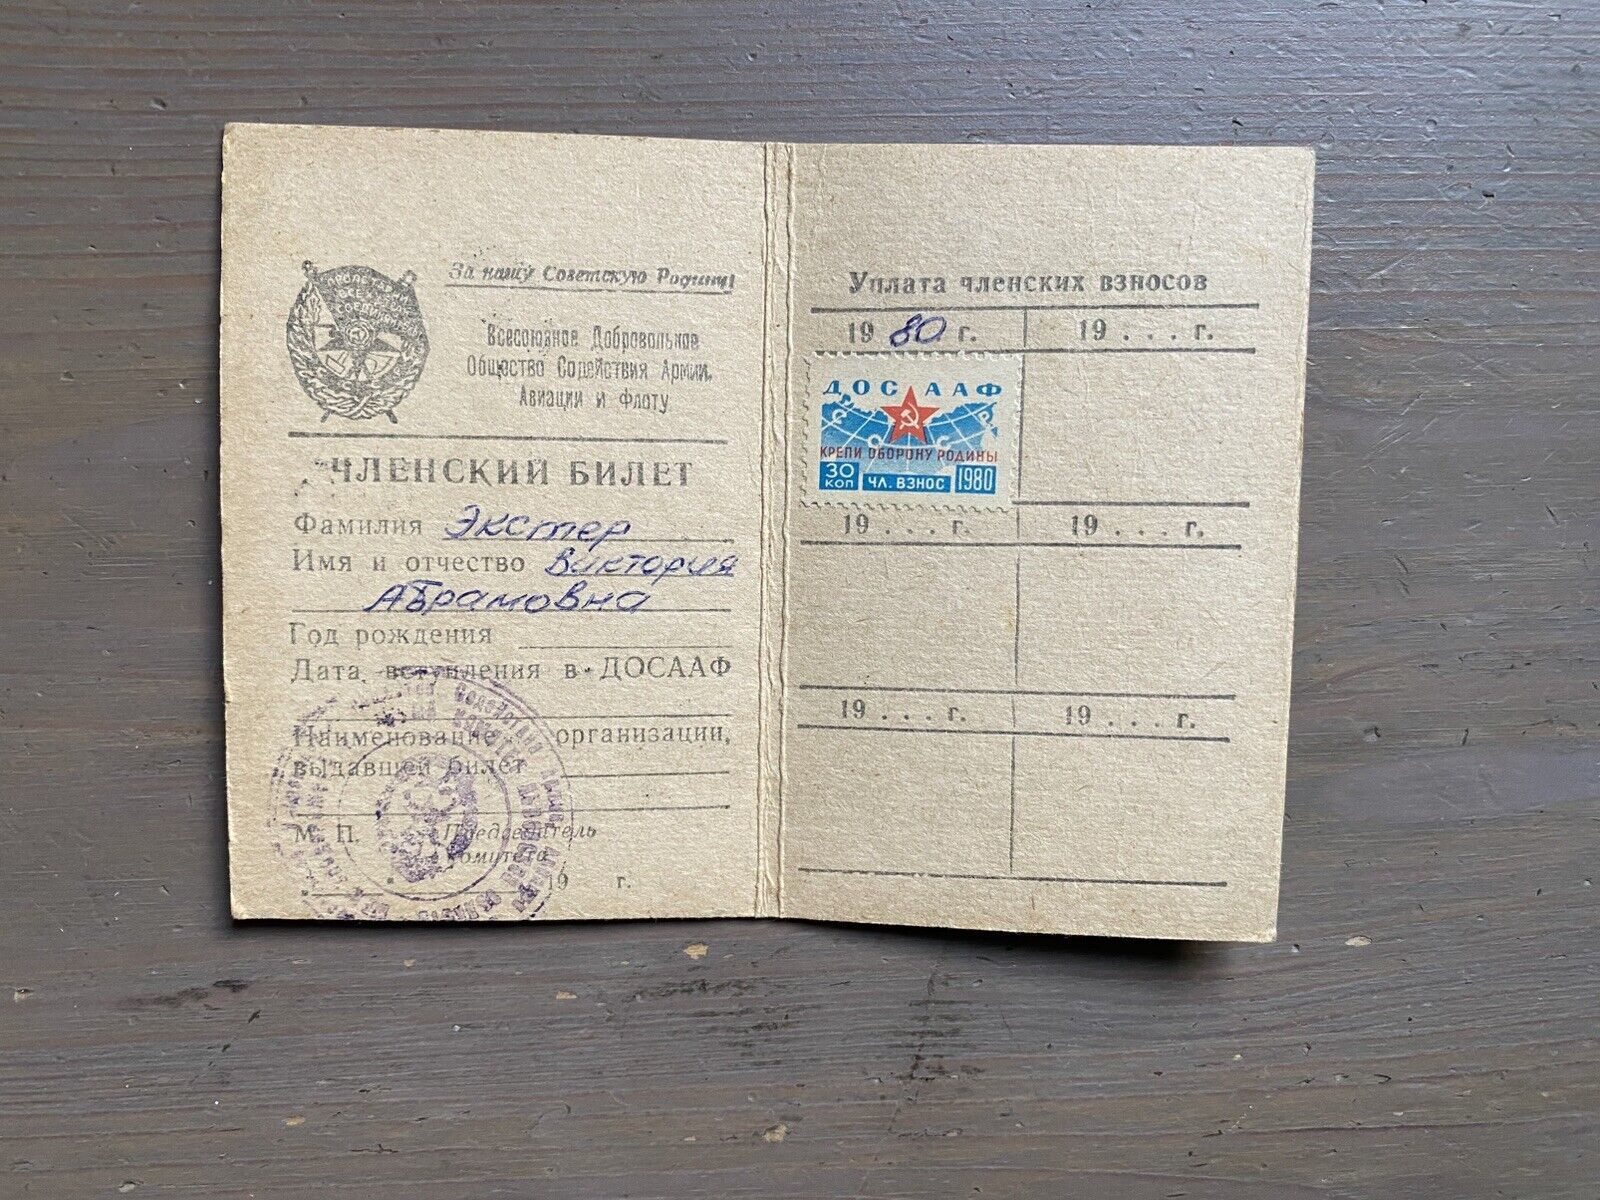 За нашу Советскую Родину!
Всесоюзное Добровольное
Общество Содействия Армии,
Авиации и Флоту
ЧЛЕНСКИЙ БИЛЕТ
Фамилия Экстер
Имя и отчество Виктория
Абрамовна
Год рождения
Дата вступления в ДОСААФ
Наименование организации,
выдавшей билет
М. П. Председатель
комитета
19 г.
Уплата членских взносов
19 80 г. 19 . . . г.
ДОСААФ
СССР
КРЕПИ ОБОРОНУ РОДИНЫ
30 КОП ЧЛ. ВЗНОС 1980
19 . . . г. 19 . . . г.
19 . . . г. 19 . . . г.